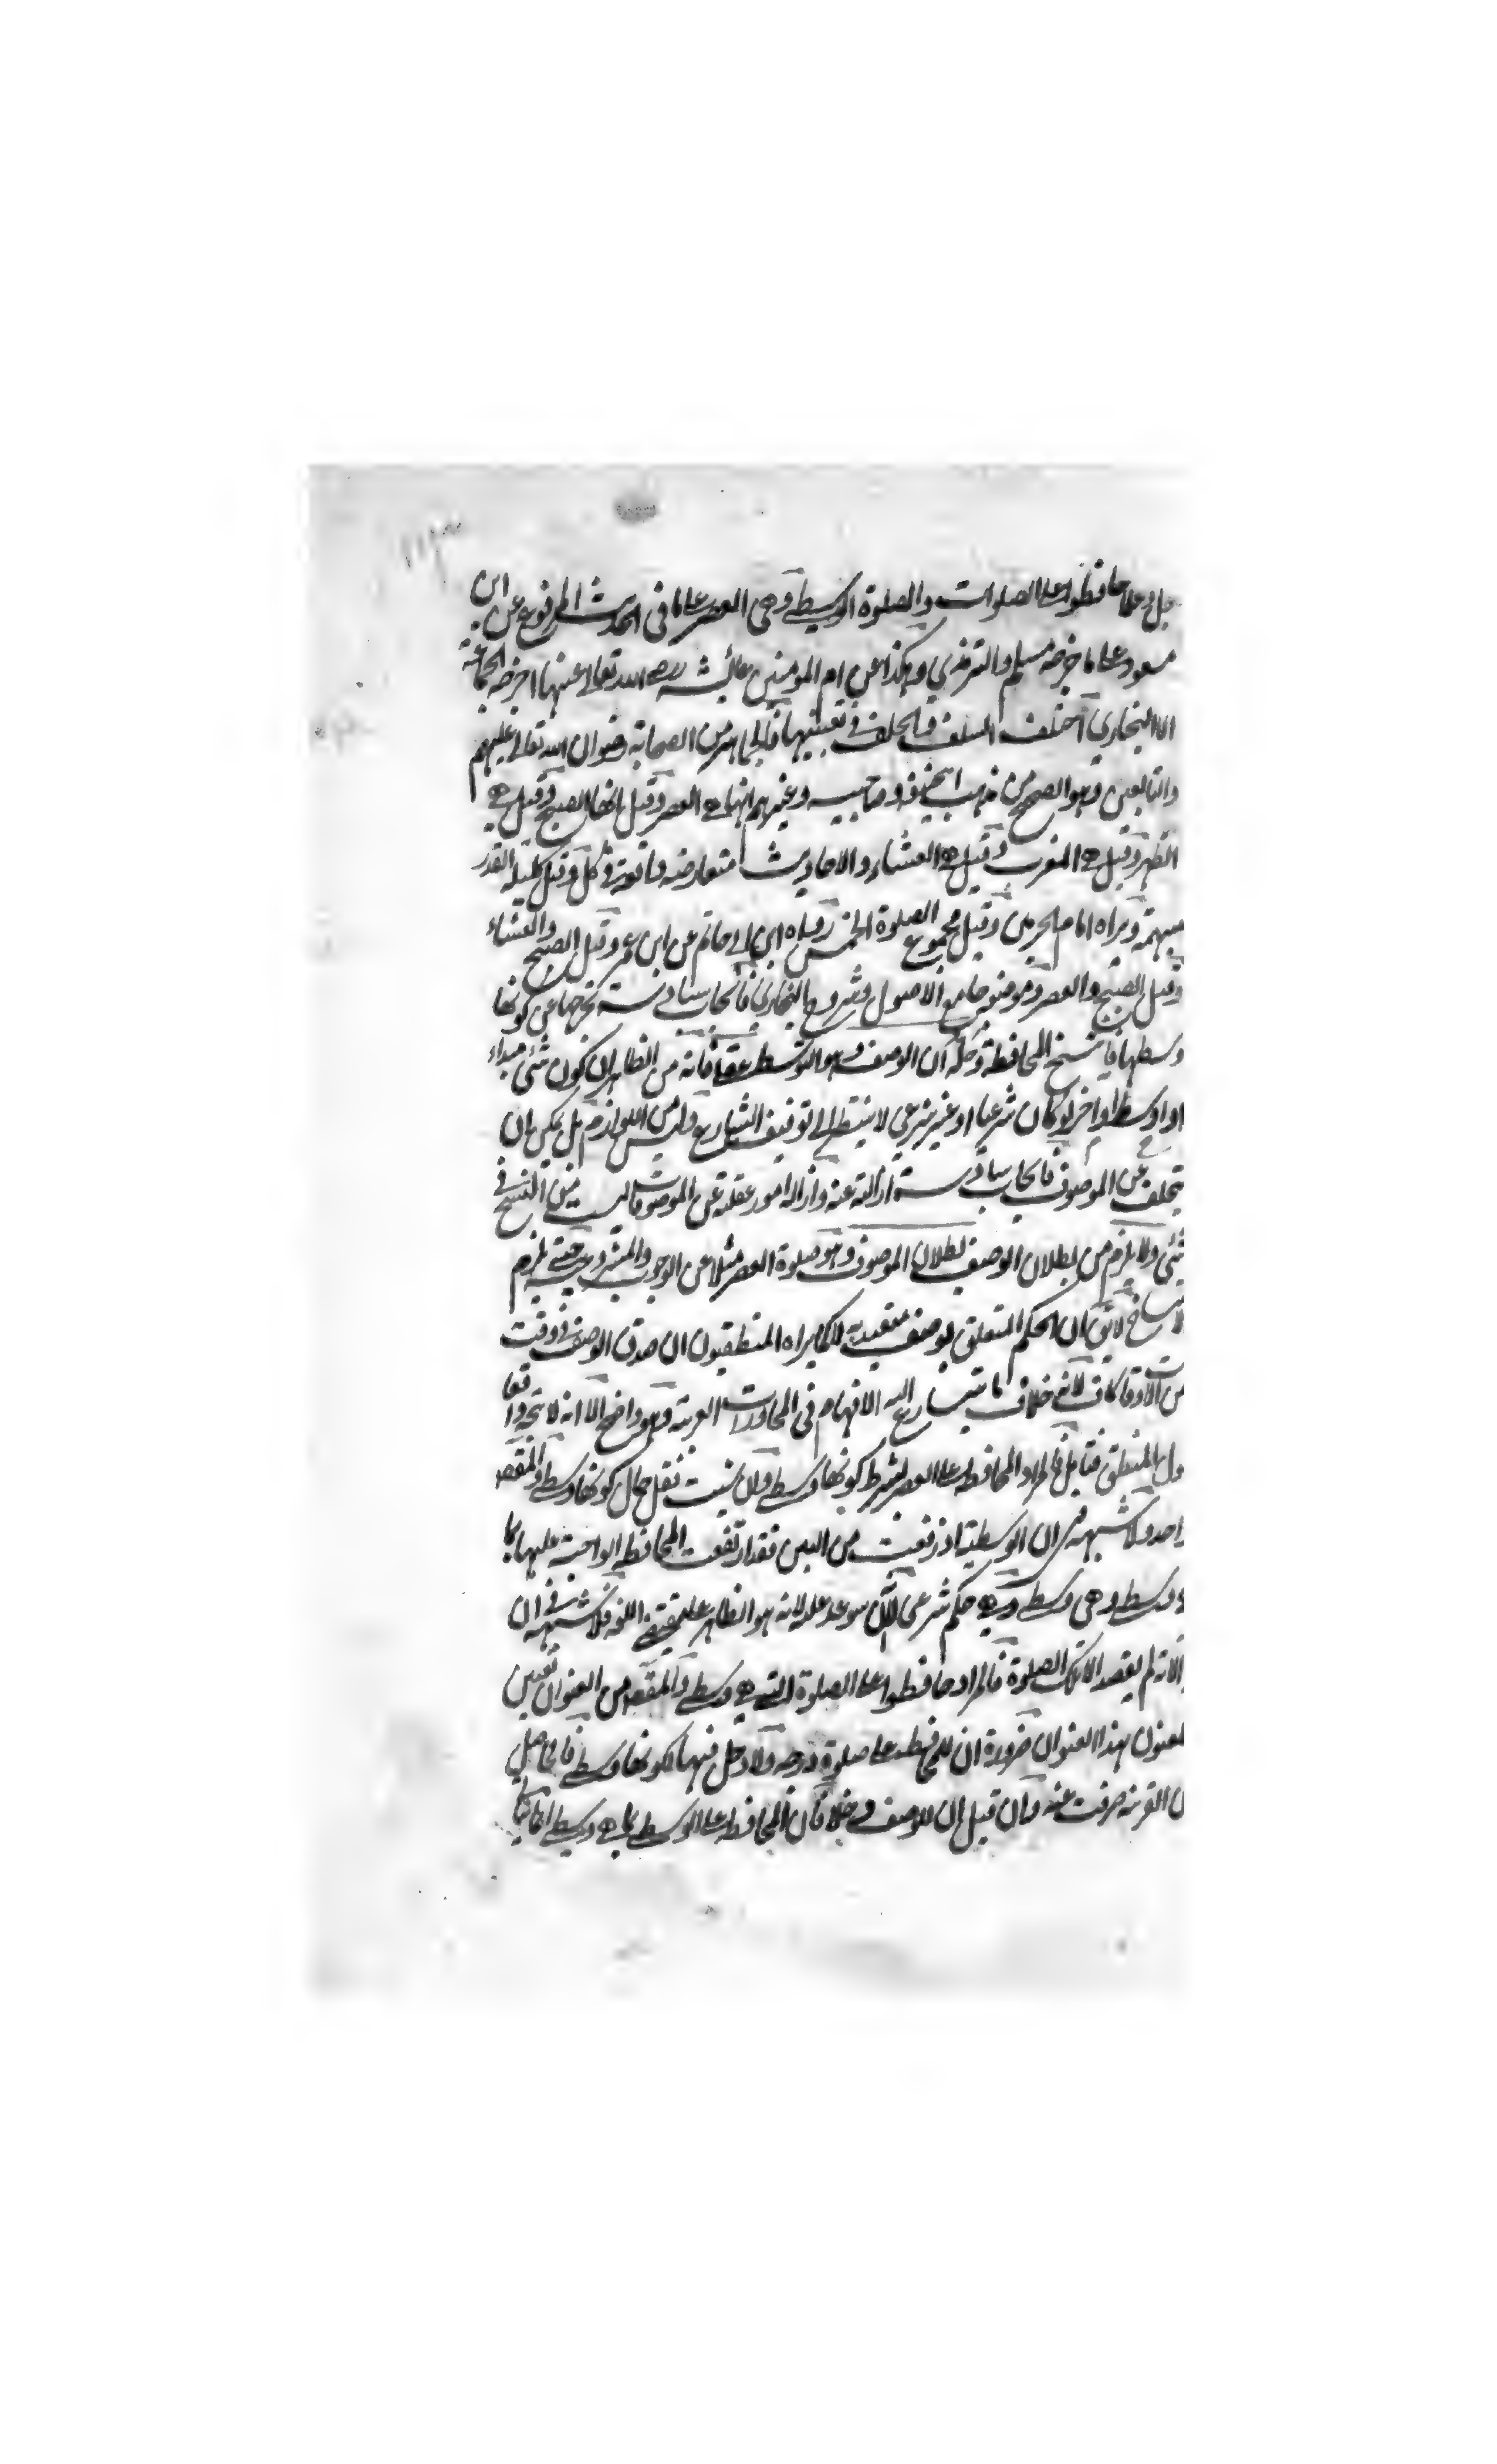 جل وعلا حافظوا على الصلوات والصلوة الوسطى وهى العصر على ما فى الحديث المرفوع عن ابن
مسعود على ما اخرجه مسلم والترمذي وهكذا عن ام المومنين عائشة رضي الله تعالى عنها اخرجه الجماعة
الا البخاري اختلف السلف والخلف في تعيينها فالجماهر من الصحابة رضوان الله تعالى عليهم
والتابعين وهو الصحيح من مذهب ابيحنيفة وصاحبيه وغيرهم انها هي العصر وقيل انها الصبح وقيل هي
الظهر وقيل هي المغرب وقيل هي العشاء والاحاديث متعارضة واقعة في كل وقيل كليلة القدر
مبهمة ويراه امام الحرمين وقيل مجموع الصلوة الخمس رواه ابن ابي حاتم عن ابن عمر وقيل الصبح والعشاء
وقيل الصبح والعصر وموضعه جامع الاصول وشروح البخاري فايجاب سادسة تخرجها عن كونها
وسطها فانتسخ المحافظة وحله ان الوصف وهو التوسط عقلي فانه من الظاهر ان كون شئ مبداء
او اوسط او اخر لو كان شرعيا او غير شرعي لا ينتظر الى توقيف الشارع وليس من اللوازم بل يمكن ان
يتخلف عن الموصوف فايجاب سادسة ازالته عنه وازالة امور عقلية عن الموصوفات ليست من النسخ في
شئ ولا يلزم من بطلان الوصف بطلان الموصوف وهو صلوة العصر مثلا عن الوجوب والمشروعية حتى يلزم
لا يق ان الحكم المتعلق بوصف متقيد به كما يراه المنطقيون ان صدق الوصف في وقت
من الاوقات كاف لانه خلاف ما يتسارع اليه الافهام فى المحاورات العربية وهو واضح الا انه لا يتجه واقعا
ول المنطق فتامل فالمراد المحافظة على العصر بشرط كونها وسطى وان شئت فقل حال كونها وسطى والمقصد
واحد ولا شبهة في ان الوسطية اذ رفعت من البين فقد ارتفعت المحافظة الواجبة عليها بما
وسطى وهى وسطى وهي حكم شرعى لانه هو الظاهر على مقتضى اللغة فلا شبهة في ان
الا انه لم يقصد الا تلك الصلوة فالمراد حافظوا على الصلوة التي هي وسطى والمقصد من العنوان تعيين
لمعنون بهذا العنوان ضرورة ان المحافظة على صلوة ولا دخل فيها لكونها وسطى فالحاصل
ن القرينة صرفت عنه وان قيل ان للوصف دخلا فان المحافظة على الوسطى بما هي وسطى